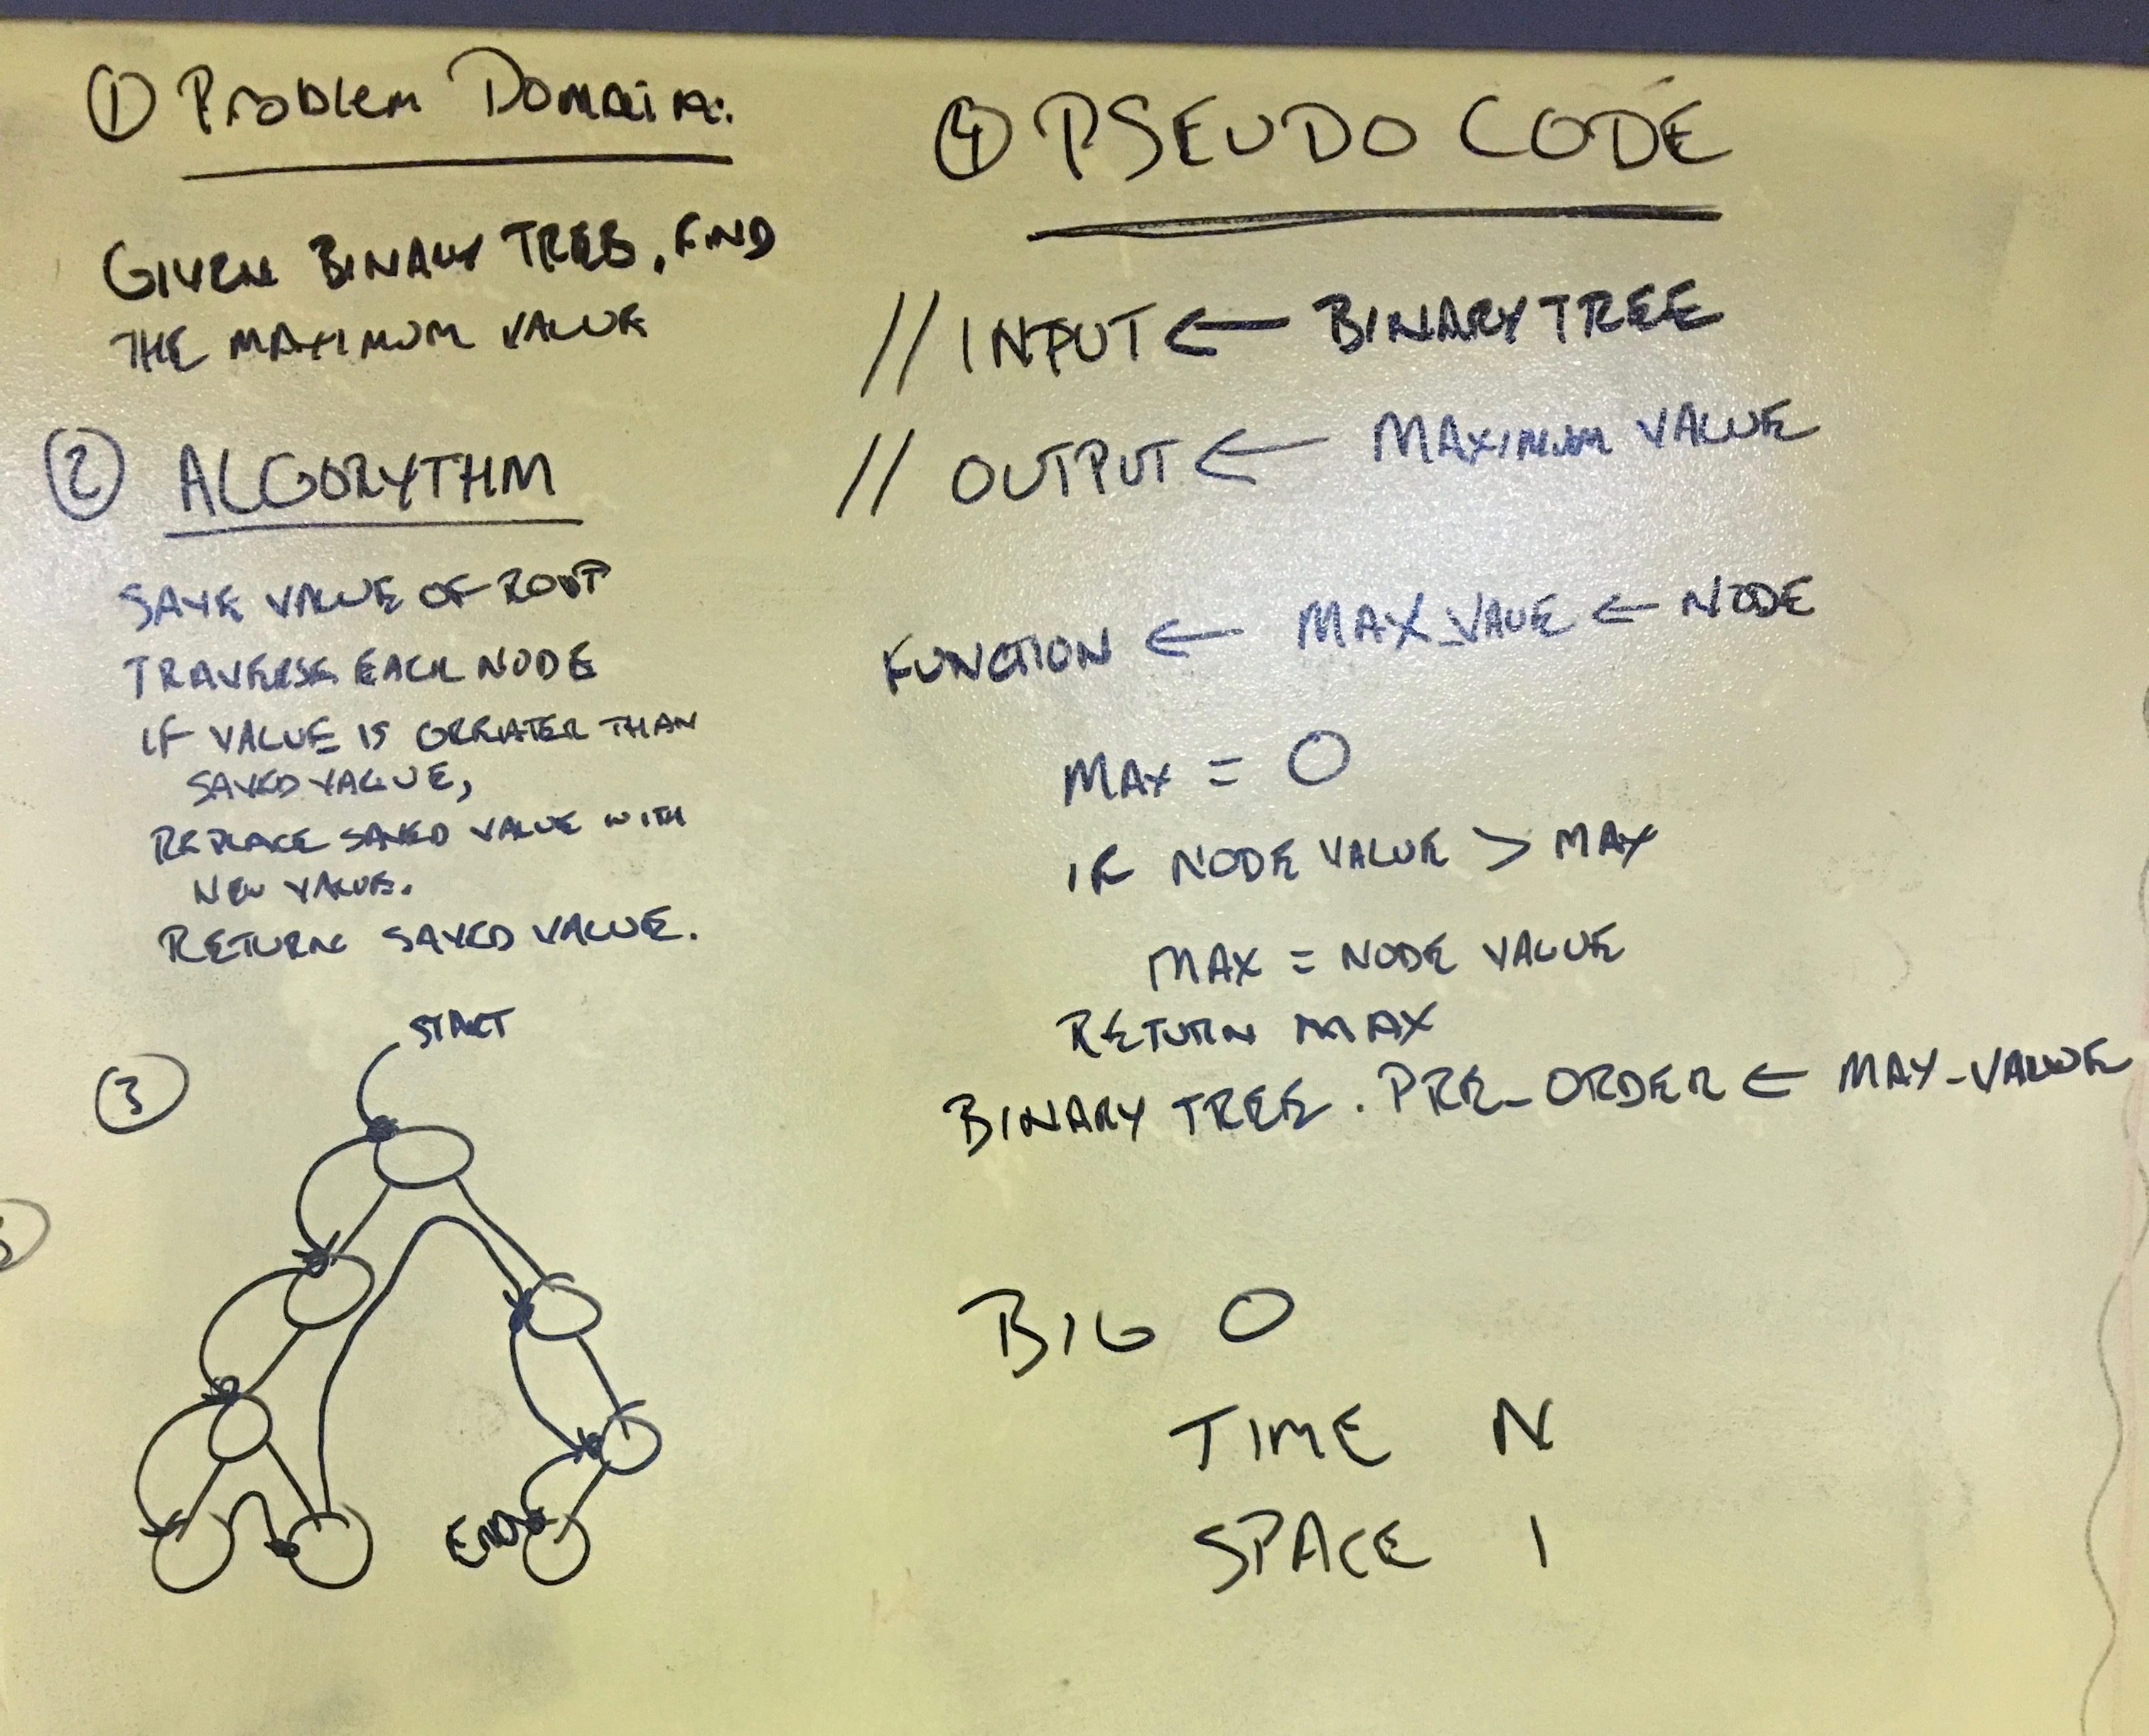 ① Problem Domain:
GIVEN BINARY TREE, FIND
THE MAXIMUM VALUE
② ALGORYTHM
SAVE VALUE OF ROOT
TRAVERSE EACH NODE
IF VALUE IS GREATER THAN
SAVED VALUE,
REPLACE SAVED VALUE WITH
NEW VALUE.
RETURN SAVED VALUE.
③
START
END
④ PSEUDO CODE
// INPUT ← BINARY TREE
// OUTPUT ← MAXIMUM VALUE
FUNCTION ← MAX_VAUE ← NODE
MAX = O
IF NODE VALUE > MAX
MAX = NODE VALUE
RETURN MAX
BINARY TREE . PRE_ORDER ← MAX-VALUE
BIG O
TIME N
SPACE 1